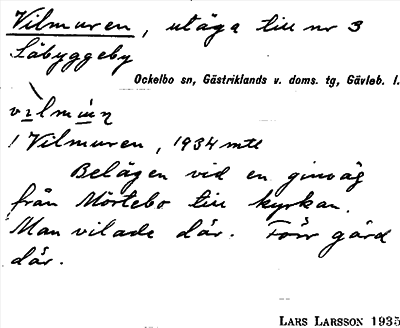 Vilmuren, utäga till nr 3
Säbyggeby
Ockelbo sn, Gästriklands v. doms. tg, Gävleb. l.
1 Vilmuren, 1934 mtl
Belägen vid en ginväg
från Mörtebo till kyrkan.
Man vilade där. Förr gård
där.
LARS LARSSON 1935